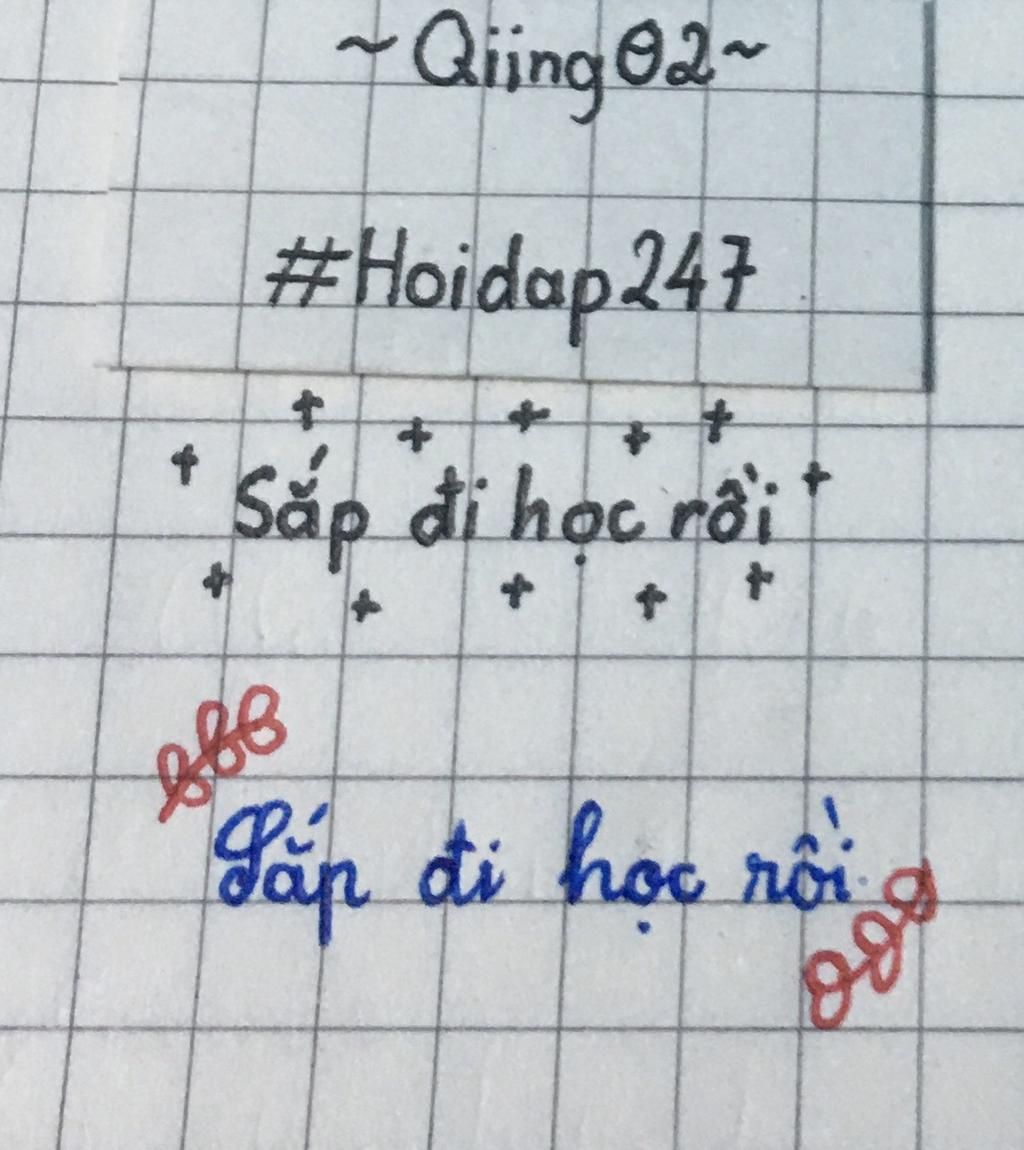 ~Qiing02~
#Hoidap247
Sắp đi học rồi
Sắp đi học rồi